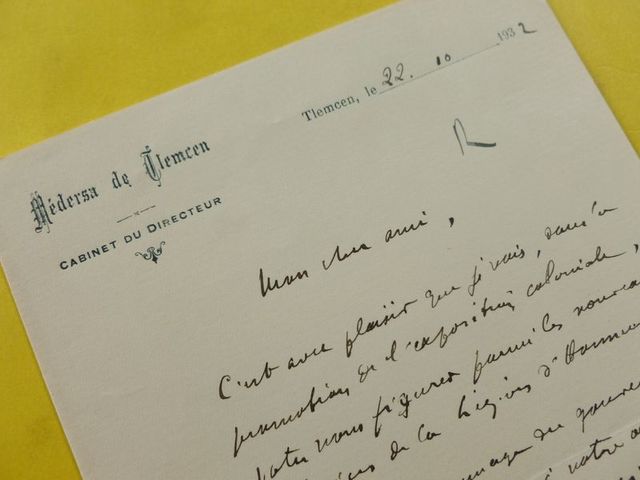 Tlemcen, le 22. 10 1932
Médersa de Tlemcen
CABINET DU DIRECTEUR
Mon cher ami,
C'est avec plaisir que je vois, dans la
promotion de l'exposition coloniale,
votre nom figurer parmi les nouveaux
de la Légion d'Honneur
du gouver
votre